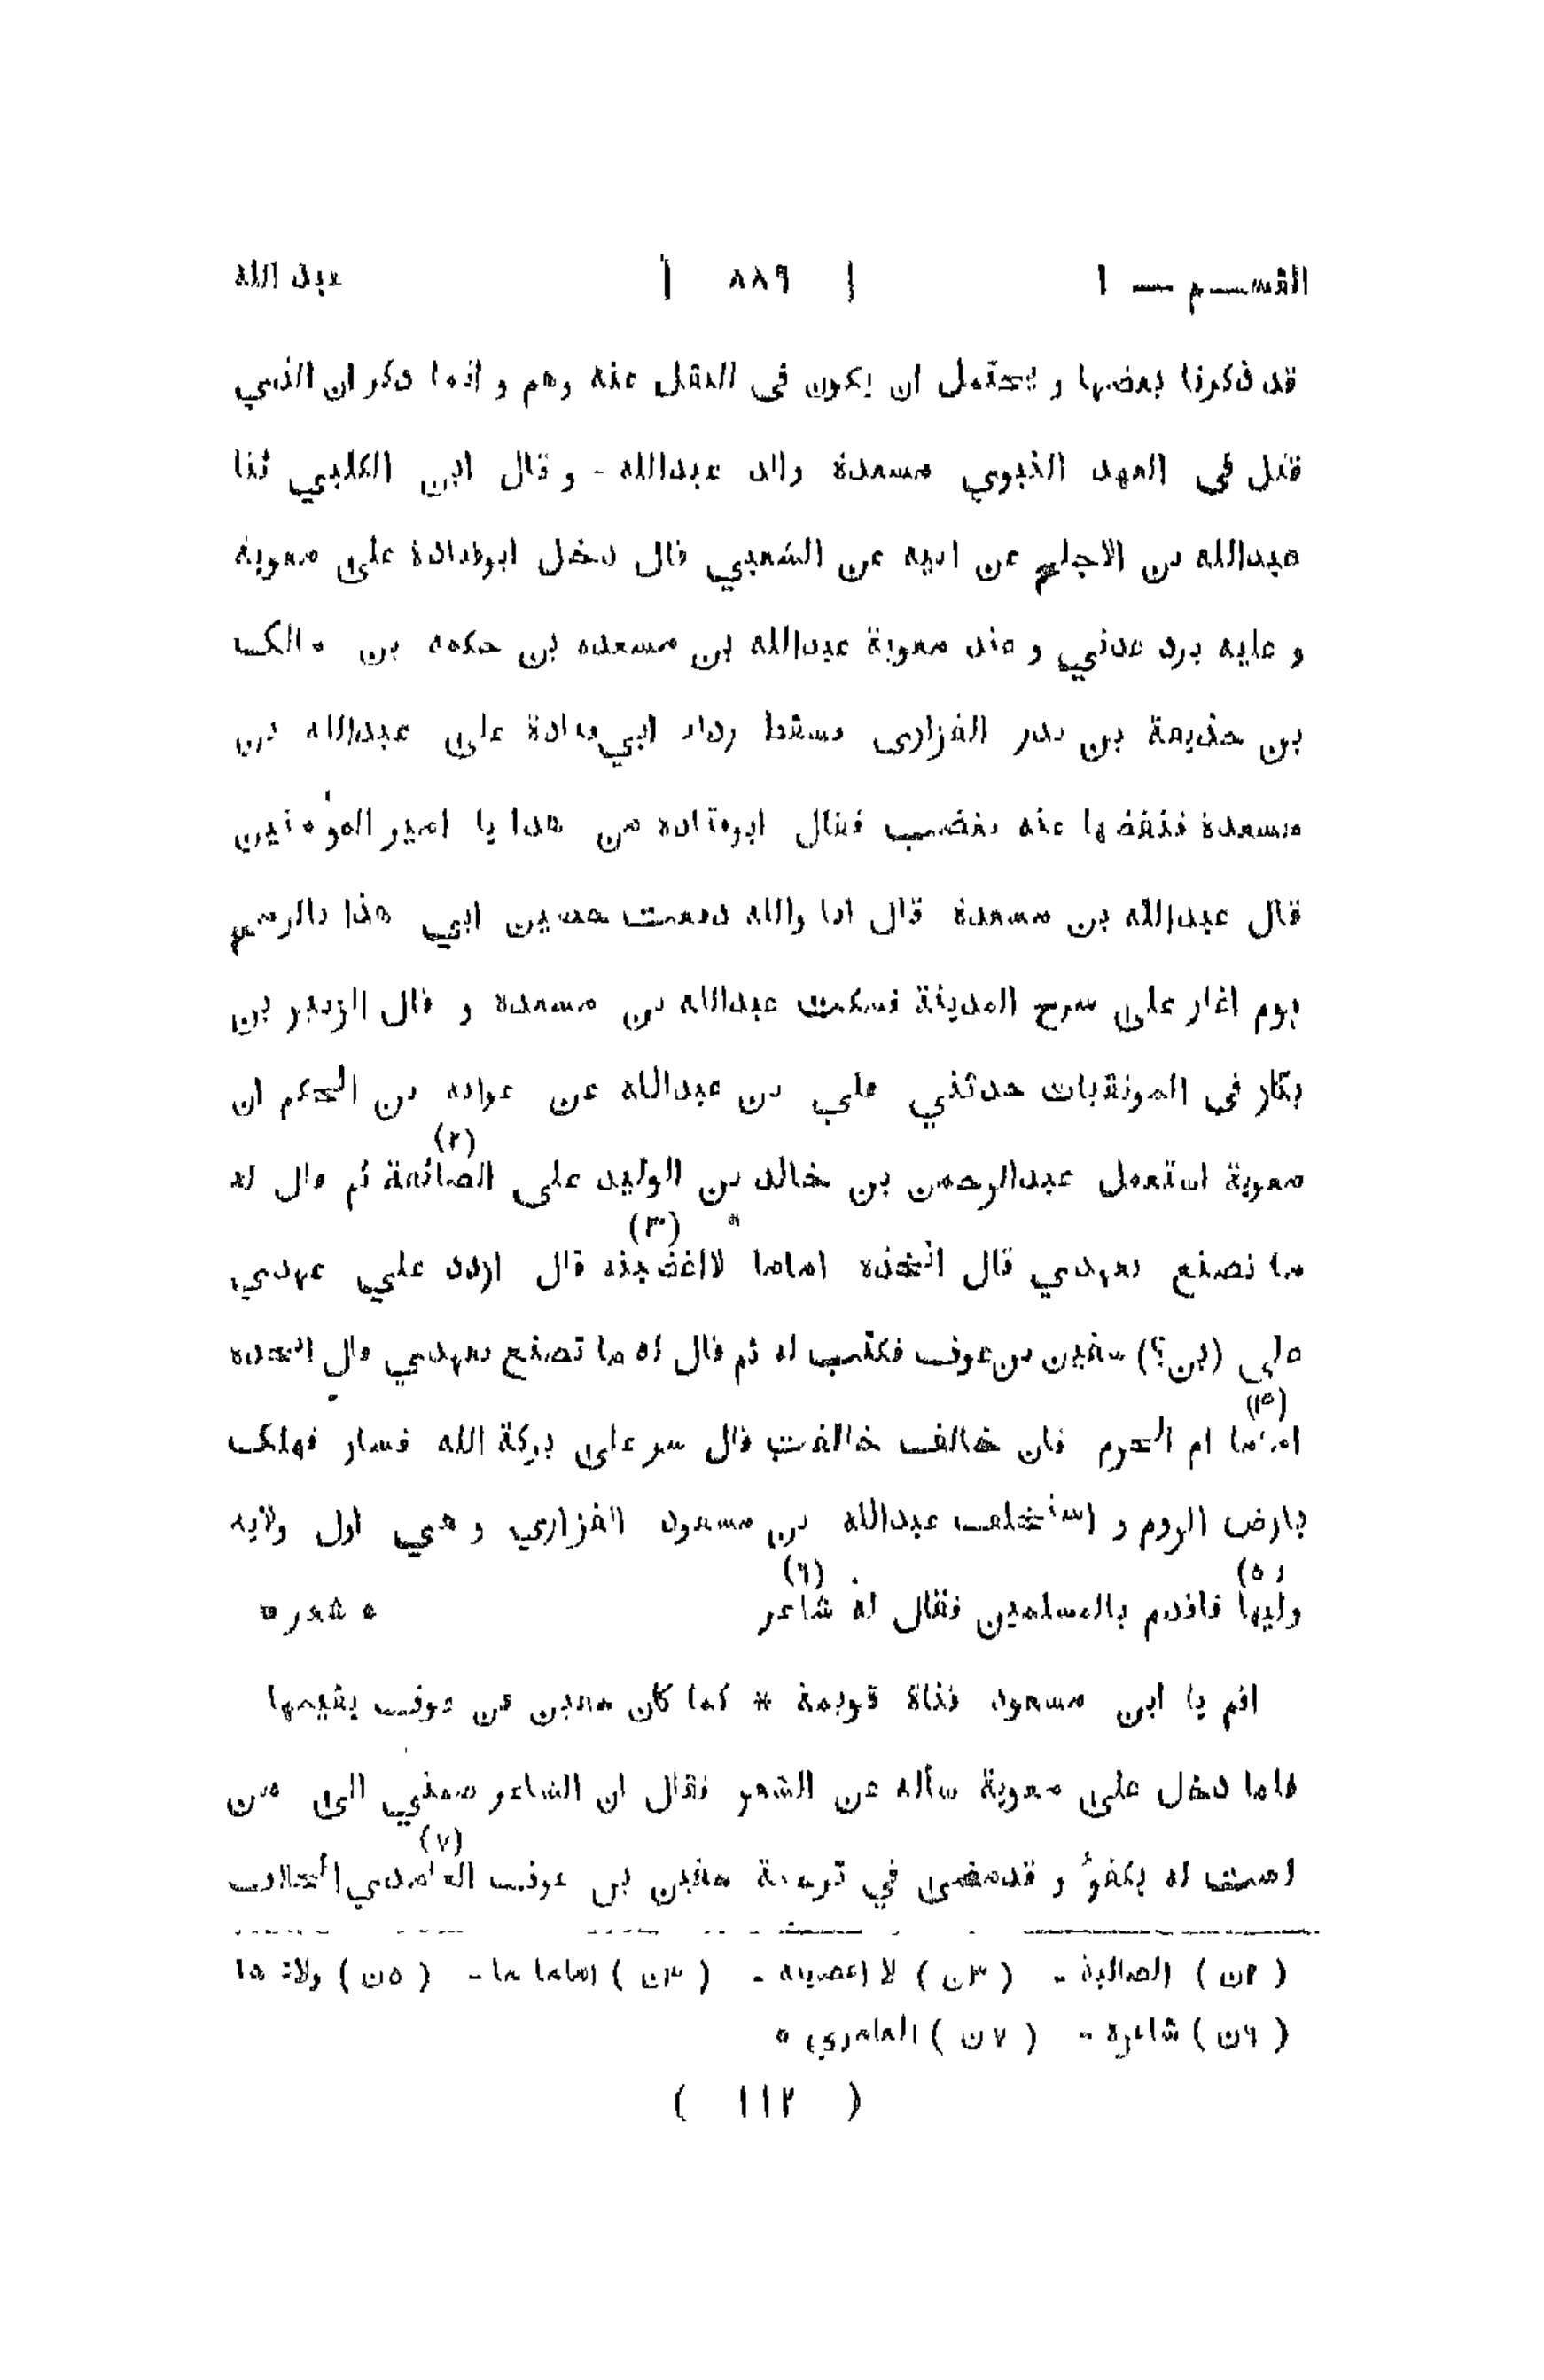 القسم — ١ | ٨٨٩ | عبد الله
قد ذكرنا بعضها و يحتمل ان يكون في النقل عنه وهم و انما ذكر ان الذي
قتل في العهد النبوي مسعدة والد عبدالله - و قال ابن الكلبي ثنا
عبدالله بن الاجلح عن ابيه عن الشعبي قال دخل ابوقتادة على معوية
و عليه برد عدني و عند معوية عبدالله بن مسعدة بن حكمة بن مالك
بن حذيفة بن بدر الفزاري فسقط رداء ابي قتادة على عبدالله بن
مسعدة فنفضها عنه بغضب فقال ابوقتادة من هذا يا امير المؤمنين
قال عبدالله بن مسعدة قال انا والله دفعت حصين ابي هذا بالرمح
يوم اغار على سرح المدينة فسكت عبدالله بن مسعدة و قال الزبير بن
بكار في الموفقيات حدثني علي بن عبدالله عن عوانة بن الحكم ان
معوية استعمل عبدالرحمن بن خالد بن الوليد على الصائفة (٢) ثم قال له
ما تصنع بعهدي قال اتخذه اماما لااغضبنه (٣) قال اردد علي عهدي
على (بن؟) سفين بن عوف فكتب له ثم قال له ما تصنع بعهدي قال اتخذه
اماما (٤) ام الحرم فان خالف خالفت قال سر على بركة الله فسار فهلك
بارض الروم و استخلف عبدالله بن مسعود الفزاري و هي اول ولاية
وليها (٥) فاقدم بالمسلمين فقال له شاعر (٦) * شعر *
اقم يا ابن مسعود قناة قويمة * كما كان سفين بن عوف يقيمها
فلما دخل على معوية سأله عن الشعر فقال ان الشاعر ضمني الى من
لست له بكفؤ و قدمضى في ترجمة سفين بن عوف الغامدي (٧) الخلاف
( ٢ن ) الصالبة - ( ٣ن ) لا اعصينه - ( ٤ن ) اماما ما - ( ٥ن ) ولاها
( ٦ن ) شاعره - ( ٧ن ) العامري *
( ١١٢ )